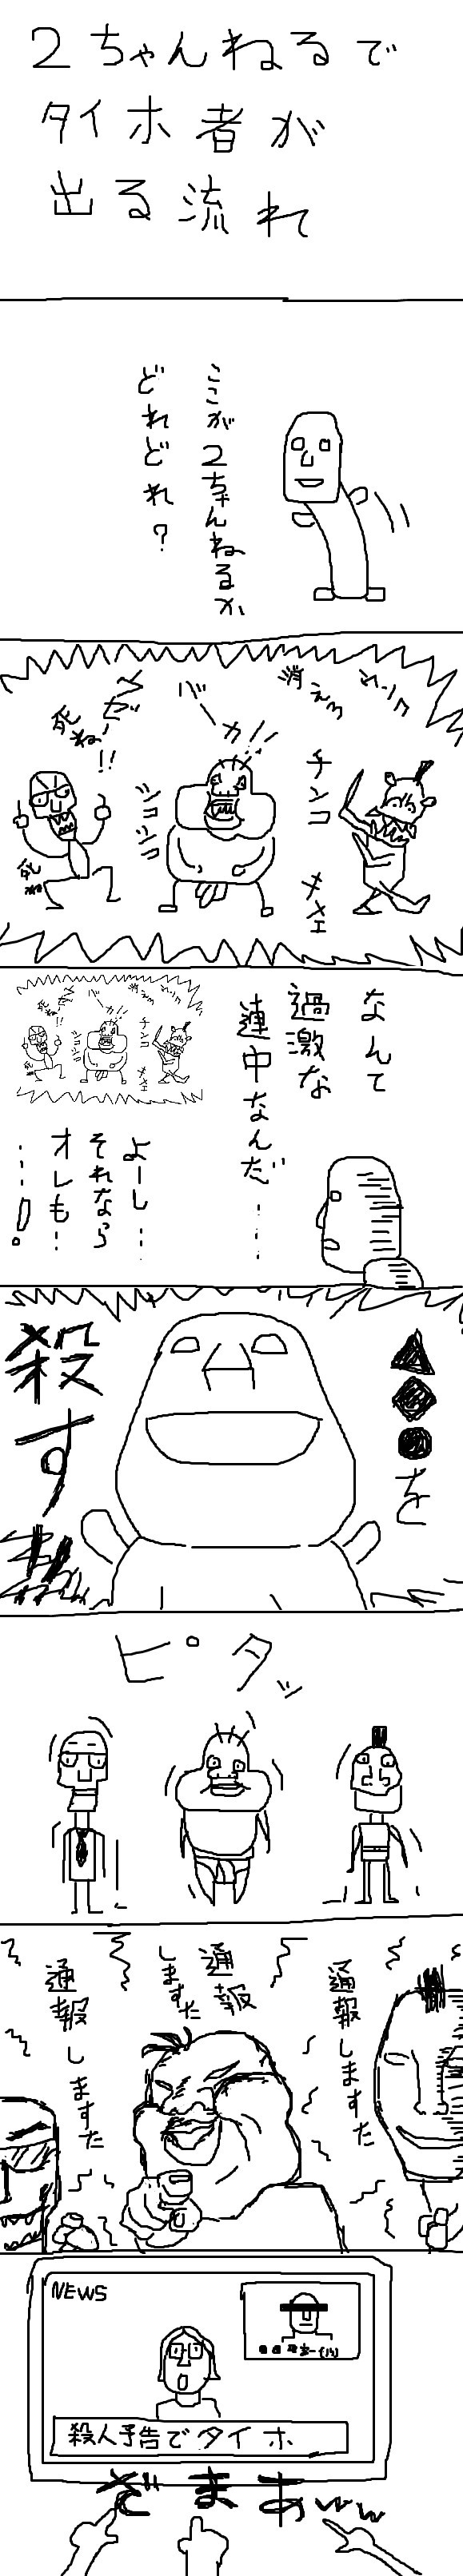 2ちゃんねるで
タイホ者が
出る流れ
ここが2ちゃんねるか
どれどれ?
消えろ
バーカ!!
死ね!!
チンコ
シコシコ
死ね
なんて
過激な
連中なんだ……
よーし…
それなら
オレも…
…!
▲◆●を
殺す
ピタッ
通報しますた
通報
しますた
通報しますた
NEWS
殺人予告でタイホ
ざまあww